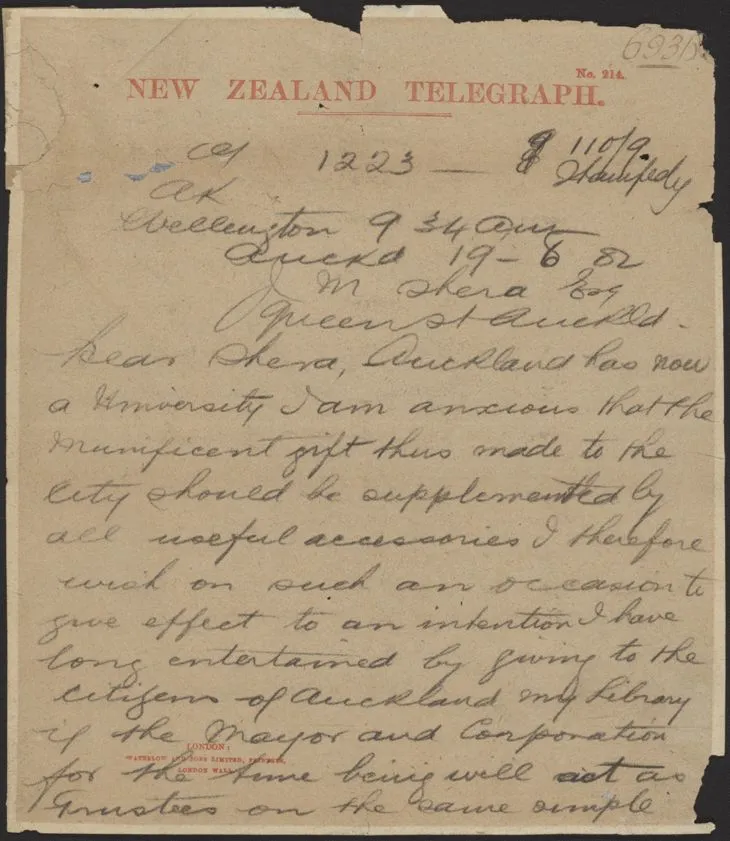 693
No. 214.
NEW ZEALAND TELEGRAPH.
1223 — 8 110/9
AK Stampedy
Wellington 9 34 Am
Auckd 19-6 82
J M Shera Esq
Queen St Auckld.
Dear Shera, Auckland has now
a University I am anxious that the
munificent gift thus made to the
City should be supplemented by
all useful accessories I therefore
wish on such an occasion to
give effect to an intention I have
long entertained by giving to the
Citizens of Auckland my Library
if the Mayor and Corporation
LONDON:
WATERLOW AND SONS LIMITED, PRINTERS,
LONDON WALL.
for the time being will act as
Trustees on the same simple